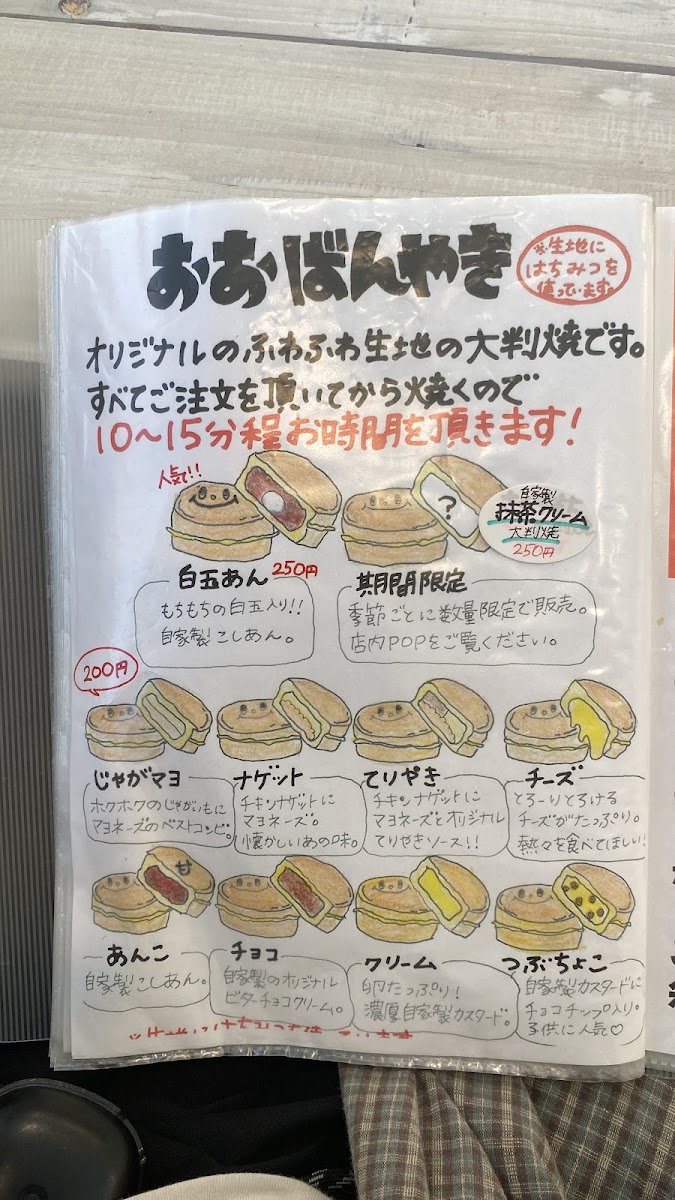 おおばんやき
※生地に
はちみつを
使っています。
オリジナルのふわふわ生地の大判焼です。
すべてご注文を頂いてから焼くので
10〜15分程お時間を頂きます!
人気!!
?
自家製
抹茶クリーム
大判焼
250円
白玉あん 250円
もちもちの白玉入り!!
自家製こしあん。
期間限定
季節ごとに数量限定で販売。
店内POPをご覧ください。
200円
じゃがマヨ
ホクホクのじゃがいもに
マヨネーズのベストコンビ。
ナゲット
チキンナゲットに
マヨネーズ。
懐かしいあの味。
てりやき
チキンナゲットに
マヨネーズとオリジナル
てりやきソース!!
チーズ
とろーりとろける
チーズがたっぷり。
熱々を食べてほしい!
甘
あんこ
自家製こしあん。
チョコ
自家製のオリジナル
ビターチョコクリーム。
クリーム
卵たっぷり!
濃厚自家製カスタード。
つぶちょこ
自家製カスタードに
チョコチップ入り。
子供に人気♡